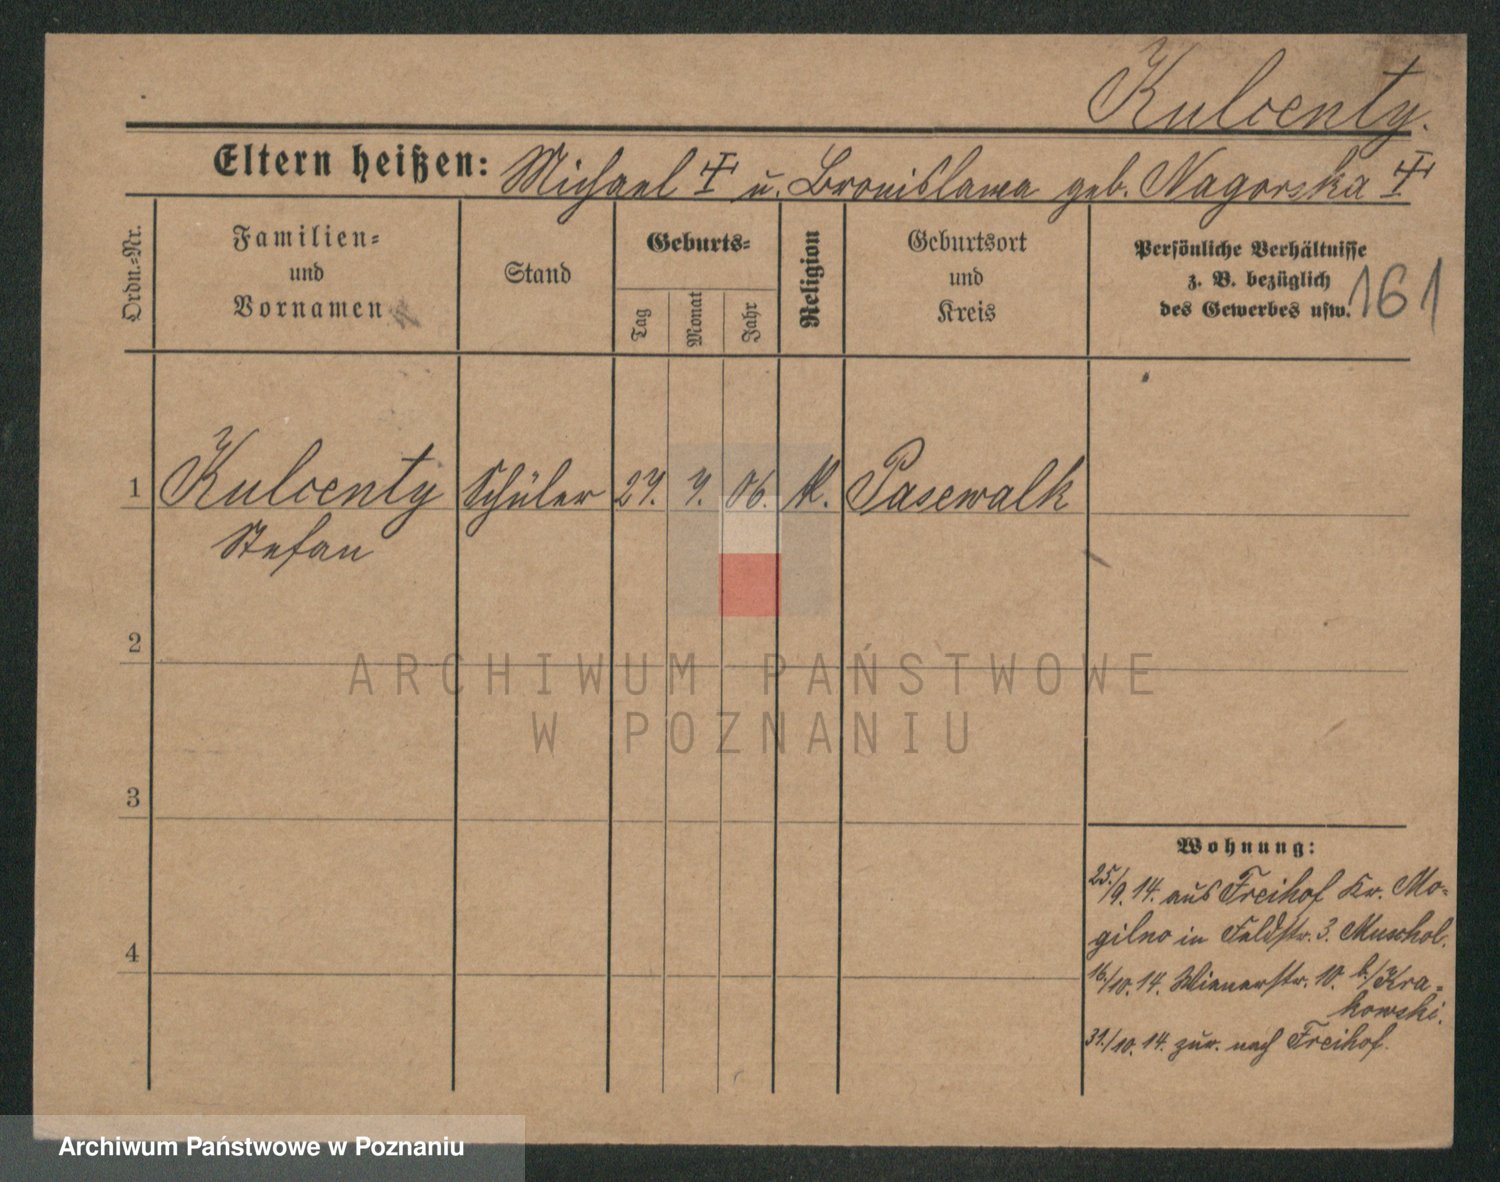 Kulcenty.
Eltern heißen: Michael u. Bronislawa geb. Nagorska
Ordn.-Nr.
Familien-
und
Vornamen
Stand
Geburts-
Tag
Monat
Jahr
Religion
Geburtsort
und
Kreis
Persönliche Verhältnisse
z. B. bezüglich
des Gewerbes usw.
161
1 Kulcenty Schüler 27. 7. 06. K. Pasewalk
Stefan
2
3
4
Wohnung:
25./9. 14. aus Freihof Kr. Mo-
gilno in Feldstr. 3. Muschol.
16./10. 14. Wienerstr. 10. b./Kra-
kowski.
31./10. 14. zur. nach Freihof.
ARCHIWUM PAŃSTWOWE
W POZNANIU
Archiwum Państwowe w Poznaniu